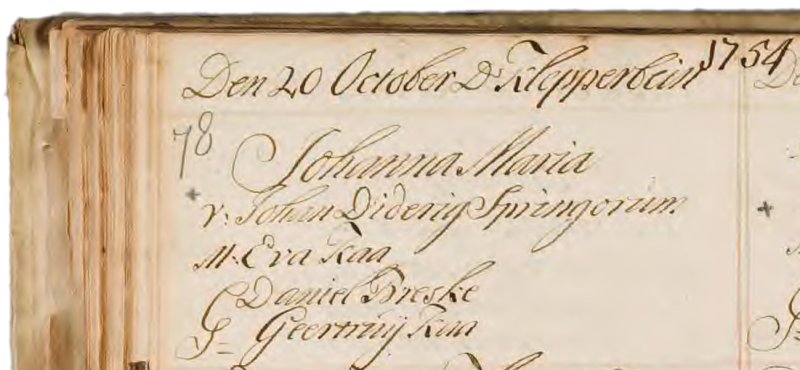 Den 20 October Ds Klepperbein 1754
78
Johanna Maria
v: Johan Diderig Springorum
M: Eva Kaa
G Daniel Breske
G= Geertruij Kaa